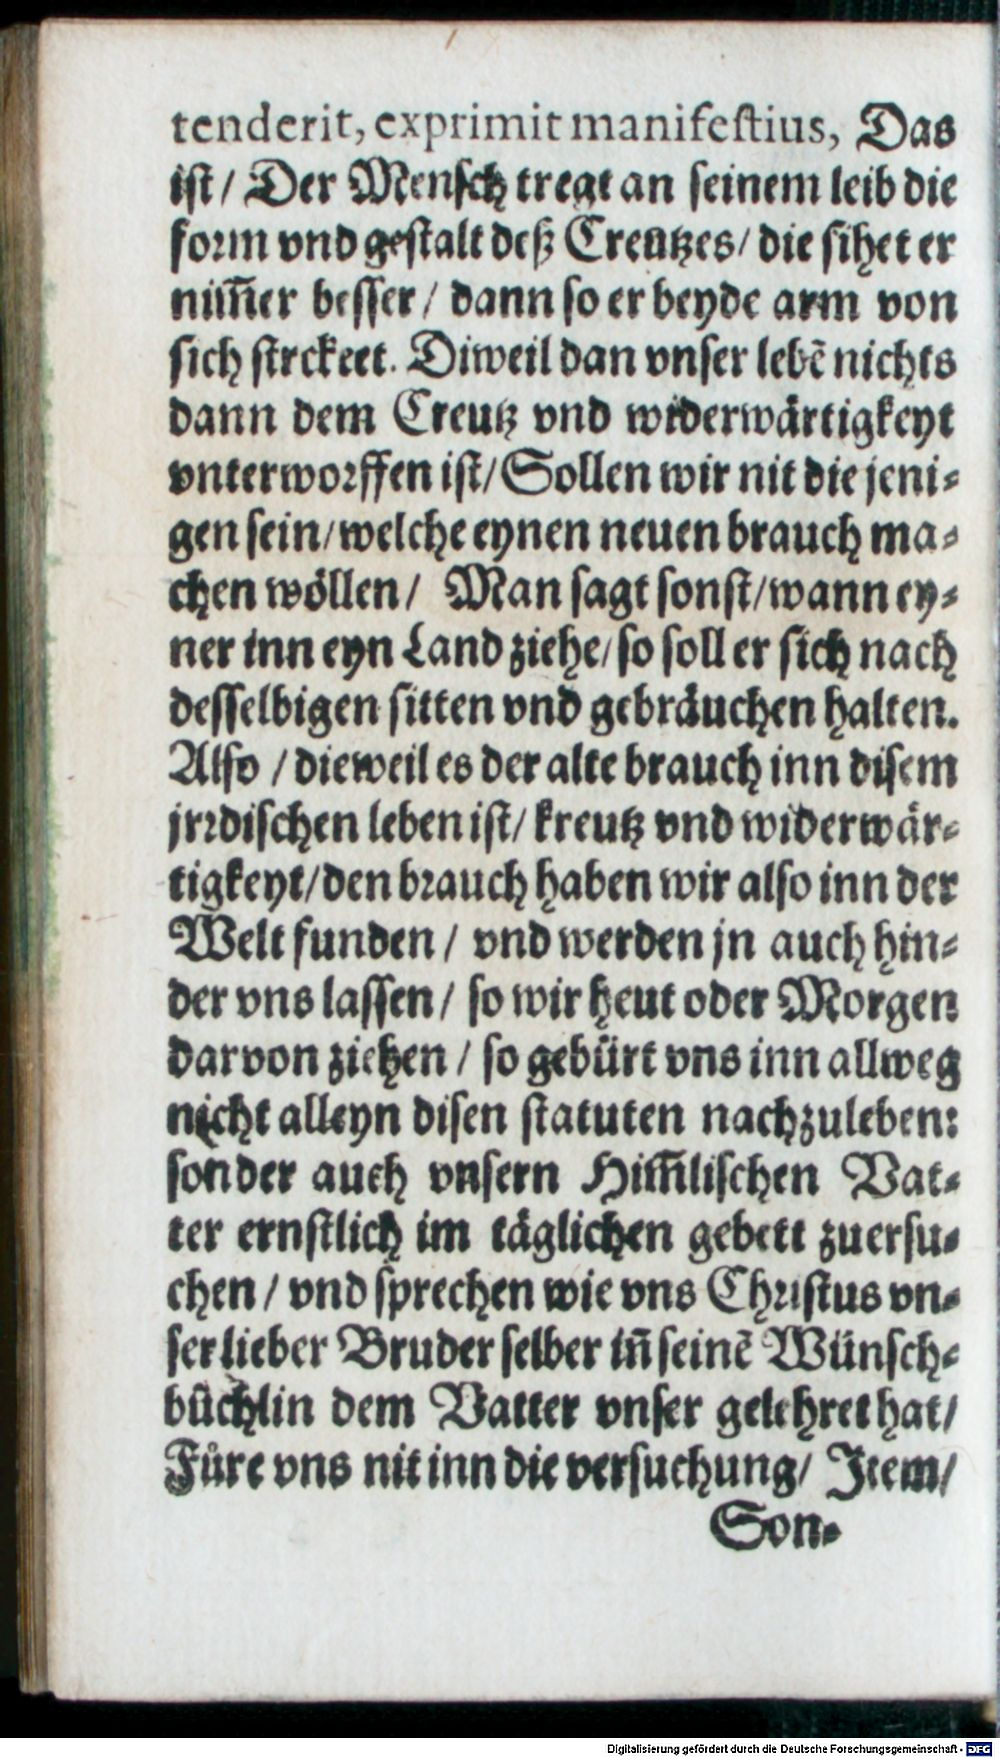 tenderit, exprimit manifestius, Das
ist / Der Mensch tregt an seinem leib die
form vnd gestalt deß Creutzes / die sihet er
nim̃er besser / dann so er beyde arm von
sich strcket. Diweil dan vnser lebẽ nichts
dann dem Creutz vnd widerwärtigkeyt
vnterworffen ist / Sollen wir nit die jeni-
gen sein / welche eynen neuen brauch ma-
chen wöllen / Man sagt sonst / wann ey-
ner inn eyn Land ziehe / so soll er sich nach
desselbigen sitten vnd gebräuchen halten.
Also / dieweil es der alte brauch inn disem
jrrdischen leben ist / kreutz vnd widerwär-
tigkeyt / den brauch haben wir also inn der
Welt funden / vnd werden jn auch hin-
der vns lassen / so wir heut oder Morgen
darvon ziehen / so gebürt vns inn allweg
nicht alleyn disen statuten nachzuleben:
sonder auch vnsern Him̃lischen Vat-
ter ernstlich im täglichen gebett zuersu-
chen / vnd sprechen wie vns Christus vn-
ser lieber Bruder selber iñ seinẽ Wünsch-
büchlin dem Vatter vnser gelehret hat /
Füre vns nit inn die versuchung / Item /
Son-
Digitalisierung gefördert durch die Deutsche Forschungsgemeinschaft - DFG